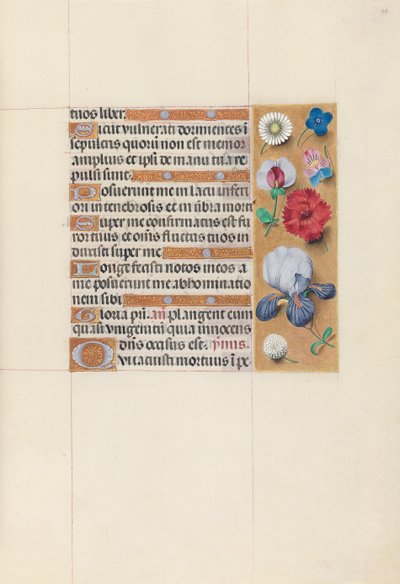 tuos liber.
Sicut vulnerati dormientes ī
sepulcris quorū non est memor
amplius et ipsi de manu tua re
pulsi sunt.
Posuerunt me in lacu inferi
ori in tenebrosis et in ūbra mort
Super me confirmatus est fu
ror tuus et ōnis fluctus tuos in
duxisti super me
Longe fecisti notos meos a
me posuerunt me abhominatio
nem sibi
Gloria pr̄i. an̄. plangent eum
quasi vnigenitū quia innocens
dn̄s occisus est. ymn̄s.
Qui iacuisti mortuus ī pe